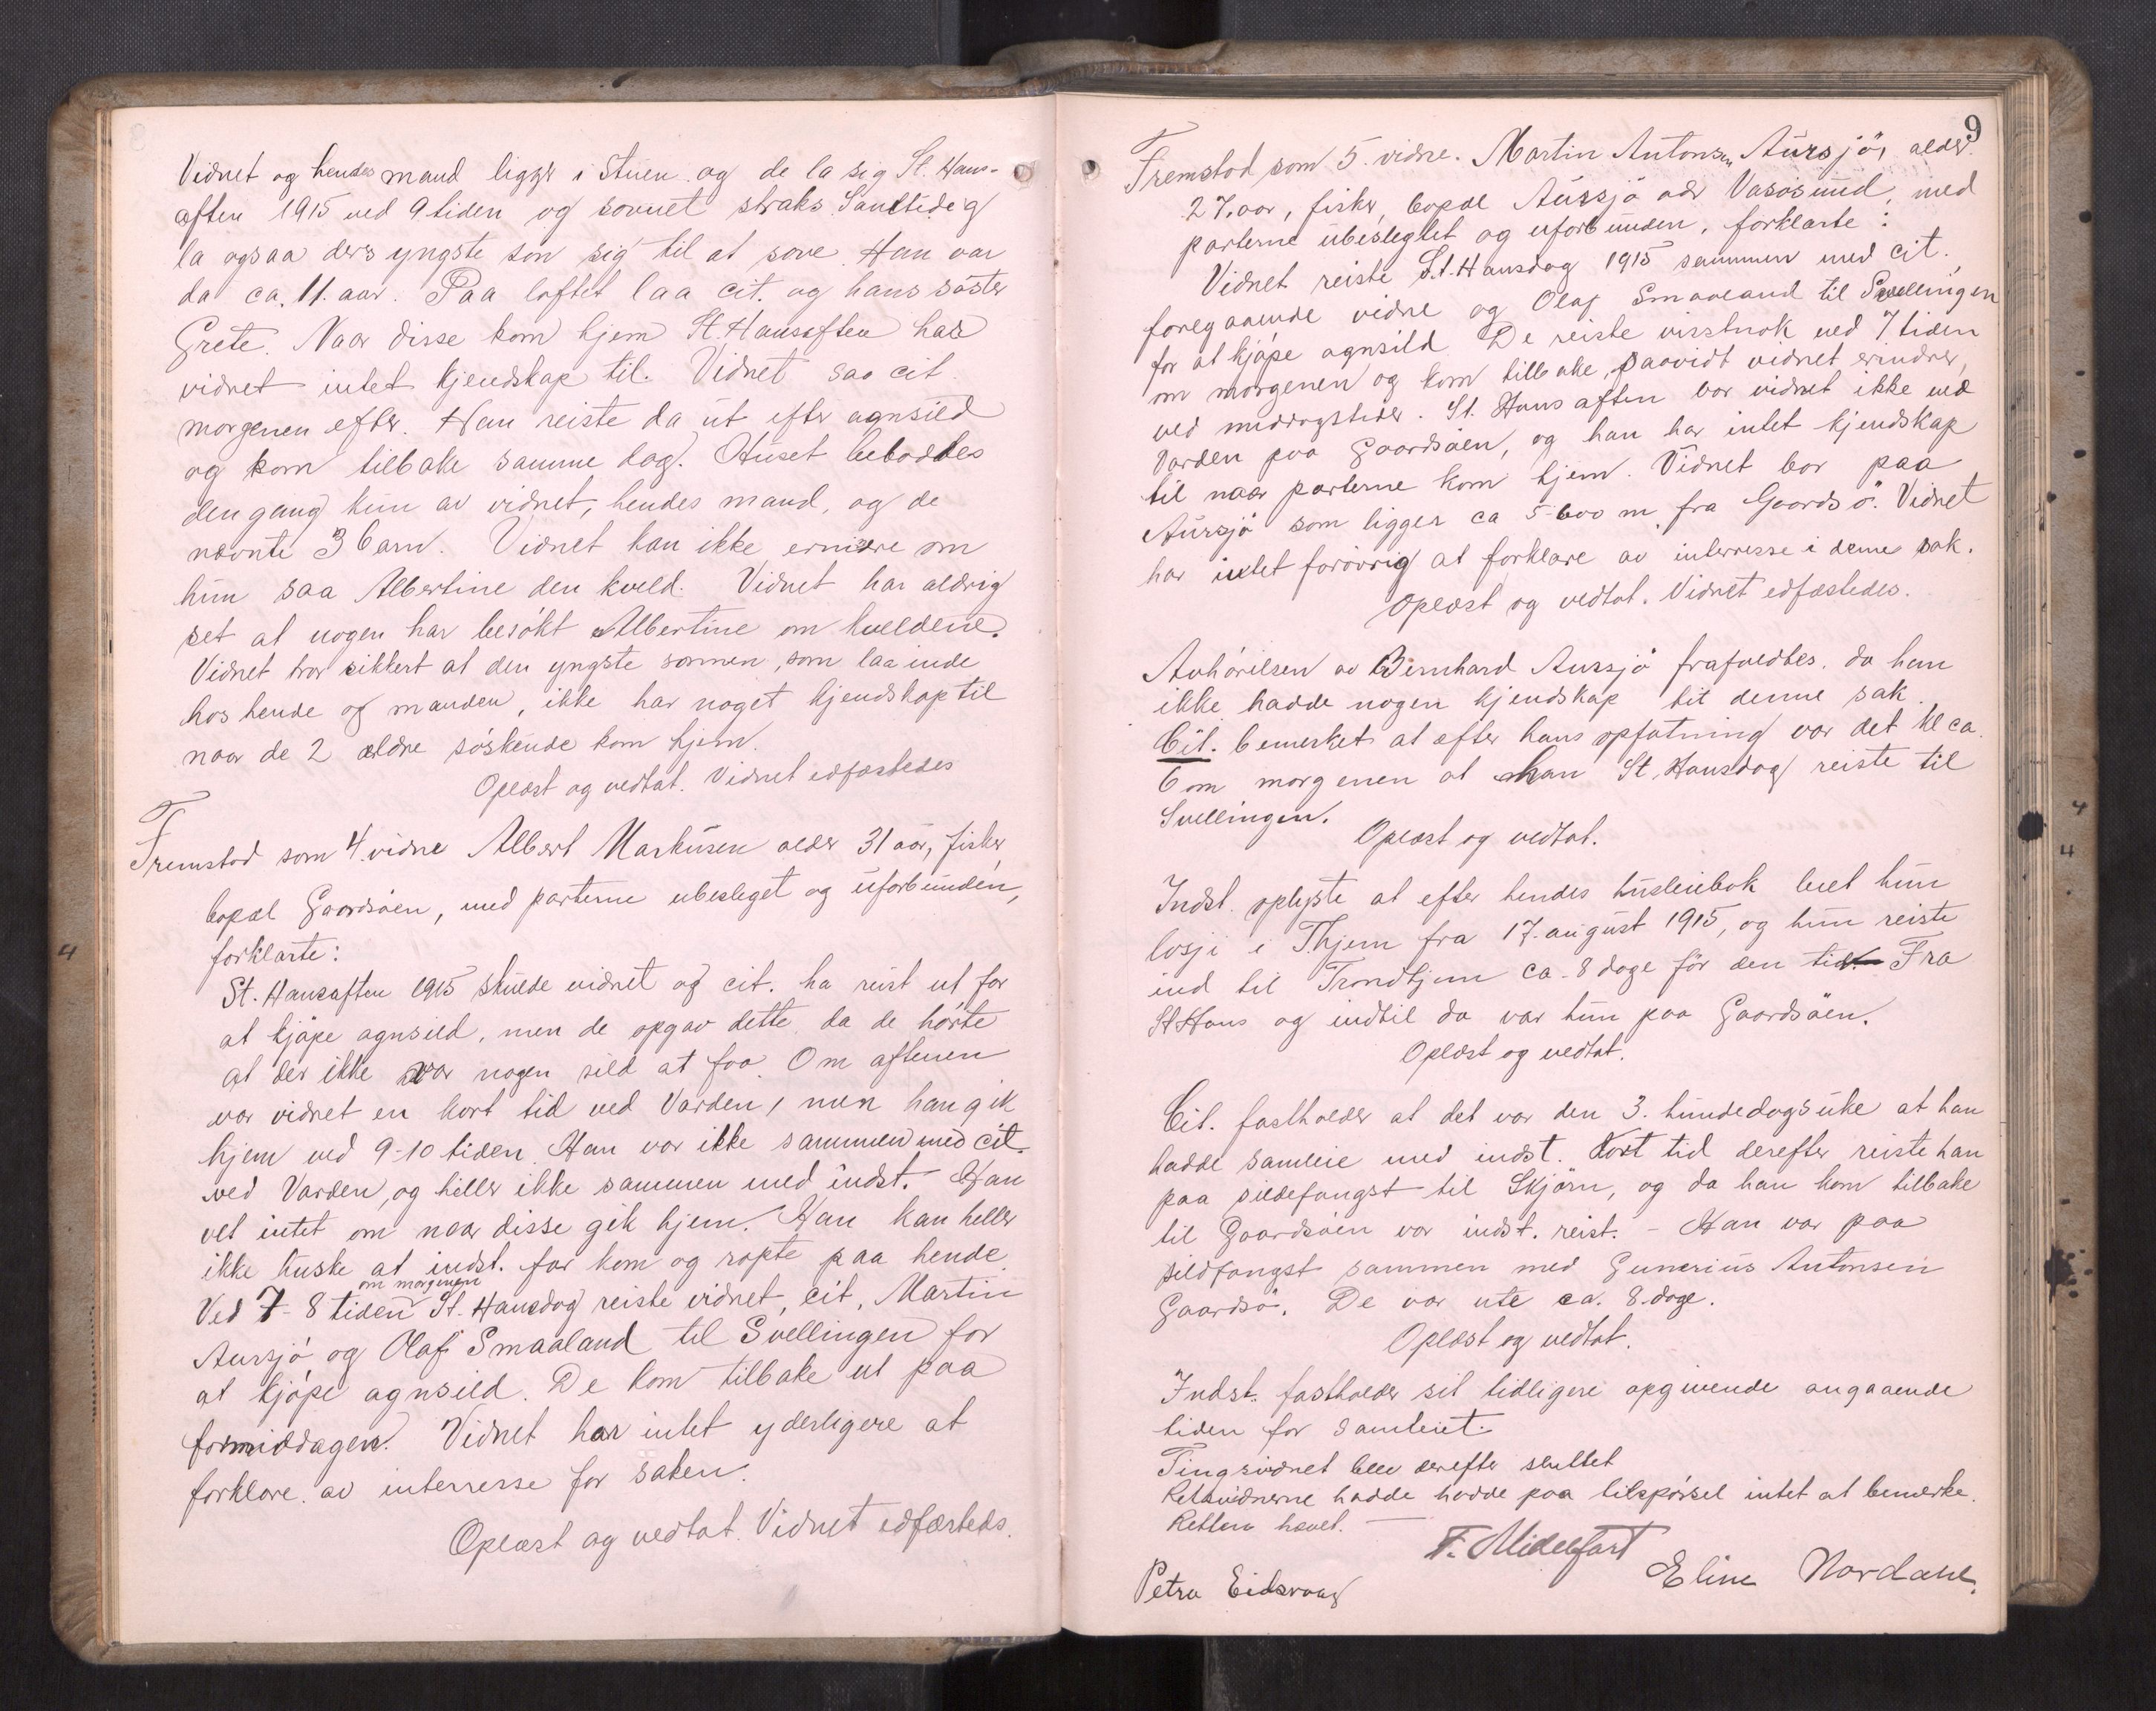 Vidnet og hendes mand ligger i Stuen og de la sig St. Hans-
aften 1915 ved 9 tiden og sovnet straks. Samtidig
la ogsaa ders yngste sön sig til at sove. Han var
da ca. 11. aar. Paa loftet laa cit. og hans söster
Grete. Naar disse kom hjem St. Hansaften har
vidnet intet kjendskap til. Vidnet saa cit.
morgenen efter. Han reiste da ut efter agnsild
og kom tilbake samme dag. Huset beboddes
dengang kun av vidnet, hendes mand, og de
nævnte 3 barn. Vidnet kan ikke erindre om
hun saa Albertine den kveld. Vidnet har aldrig
set at nogen har besökt Albertine om kveldene.
Vidnet tror sikkert at den yngste sönnen, som laa inde
hos hende og manden, ikke har noget kjendskap til
naar de 2 ældre söskende kom hjem.
Oplæst og vedtat. Vidnet edfæstedes
Fremstod som 4. vidne Albert Markusen alder 31 aar, fisker,
bopæl Gaardsöen, med parterne ubesleget og uforbunden,
forklarte:
St. Hansaften 1915 skulde vidnet og cit. ha reist ut for
at kjöpe agnsild, men de opgav dette, da de hörte
at der ikke var nogen sild at faa. Om aftenen
var vidnet en kort tid ved Varden, men han gik
hjem ved 9-10 tiden. Han var ikke sammen med cit.
ved Varden, og heller ikke sammen med indst. Han
vet intet om naar disse gik hjem. Han kan heller
ikke huske at indst. far kom og ropte paa hende.
om morgenen
Ved 7-8 tiden St. Hansdag reiste vidnet, cit, Martin
Aursjö og Olaf Smaaland til Svellingen for
at kjöpe agnsild. De kom tilbake ut paa
formiddagen. Vidnet har intet yderligere at
forklare av interresse for saken.
Oplæst og vedtat. Vidnet edfæsteds.
9
Fremstod som 5. vidne. Martin Antonsen Aursjö, alder
27. aar, fisker, bopæl Aursjö adr Vasösund, med
parterne ubeslegtet og uforbunden, forklarte:
Vidnet reiste St. Hansdag 1915 sammen med cit.
foregaaende vidne og Olaf Smaaland til Svellingen
for at kjöpe agnsild. De reiste visstnok ved 7 tiden
om morgenen og kom tilbake, saavidt vidnet erindrer,
ved middagstider. St. Hans aften var vidnet ikke ved
Varden paa Gaardsöen, og han har intet kjendskap
til naar parterne kom hjem. Vidnet bor paa
Aursjö som ligger ca 5-600 m. fra Gaardsö. Vidnet
har intet forövrig at forklare av interresse i denne sak.
Oplæst og vedtat. Vidnet edfæstedes.
Avhörelsen av Bernhard Aursjö frafaldtes, da han
ikke hadde nogen kjendskap til denne sak.
Cit. bemerket at efter hans opfatning var det kl ca.
6 om morgenen at han St. Hansdag reiste til
Svellingen.
Oplæst og vedtat.
Indst. oplyste at efter hendes husleiebok leiet hun
losji i Thjem fra 17. august 1915, og hun reiste
ind til Trondhjem ca. 8 dage för den tid. Fra
St Hans og indtil da var hun paa Gaardsöen.
Oplæst og vedtat.
Cit. fastholder at det var den 3. hundedagsuke at han
hadde samleie med indst. Kort tid derefter reiste han
paa sildefangst til Skjörn, og da han kom tilbake
til Gaardsöen var indst. reist. - Han var paa
sildfangst sammen med Gunerius Antonsen
Gaardsö. De var ute ca. 8. dage.
Oplæst og vedtat.
Indst. fastholder sit tidligere opgivende angaaende
tiden for samleiet.
Tingsvidnet blev derefter sluttet
Retsvidnerne hadde hadde paa tilspörsel intet at bemerke.
Retten hævet.
F. Midelfart
Petra Eidsvaag
Eline Nordahl.
4
4
4